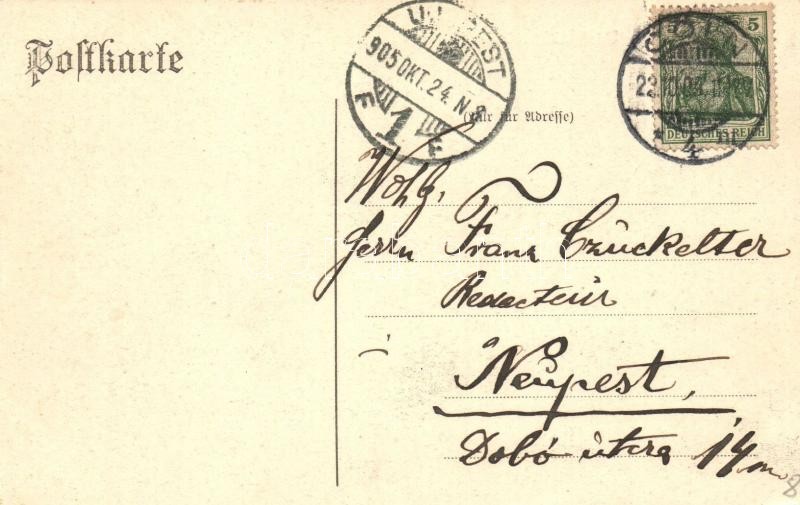 Postkarte
UJPEST
905 OKT. 24. N. 8
F 1 F
CÖLN
4
5
DEUTSCHES REICH
(Nur für Adresse)
Wohlg.
Herrn Franz Czückelter
Redacteur
Neupest,
Dobó utcza 14
8